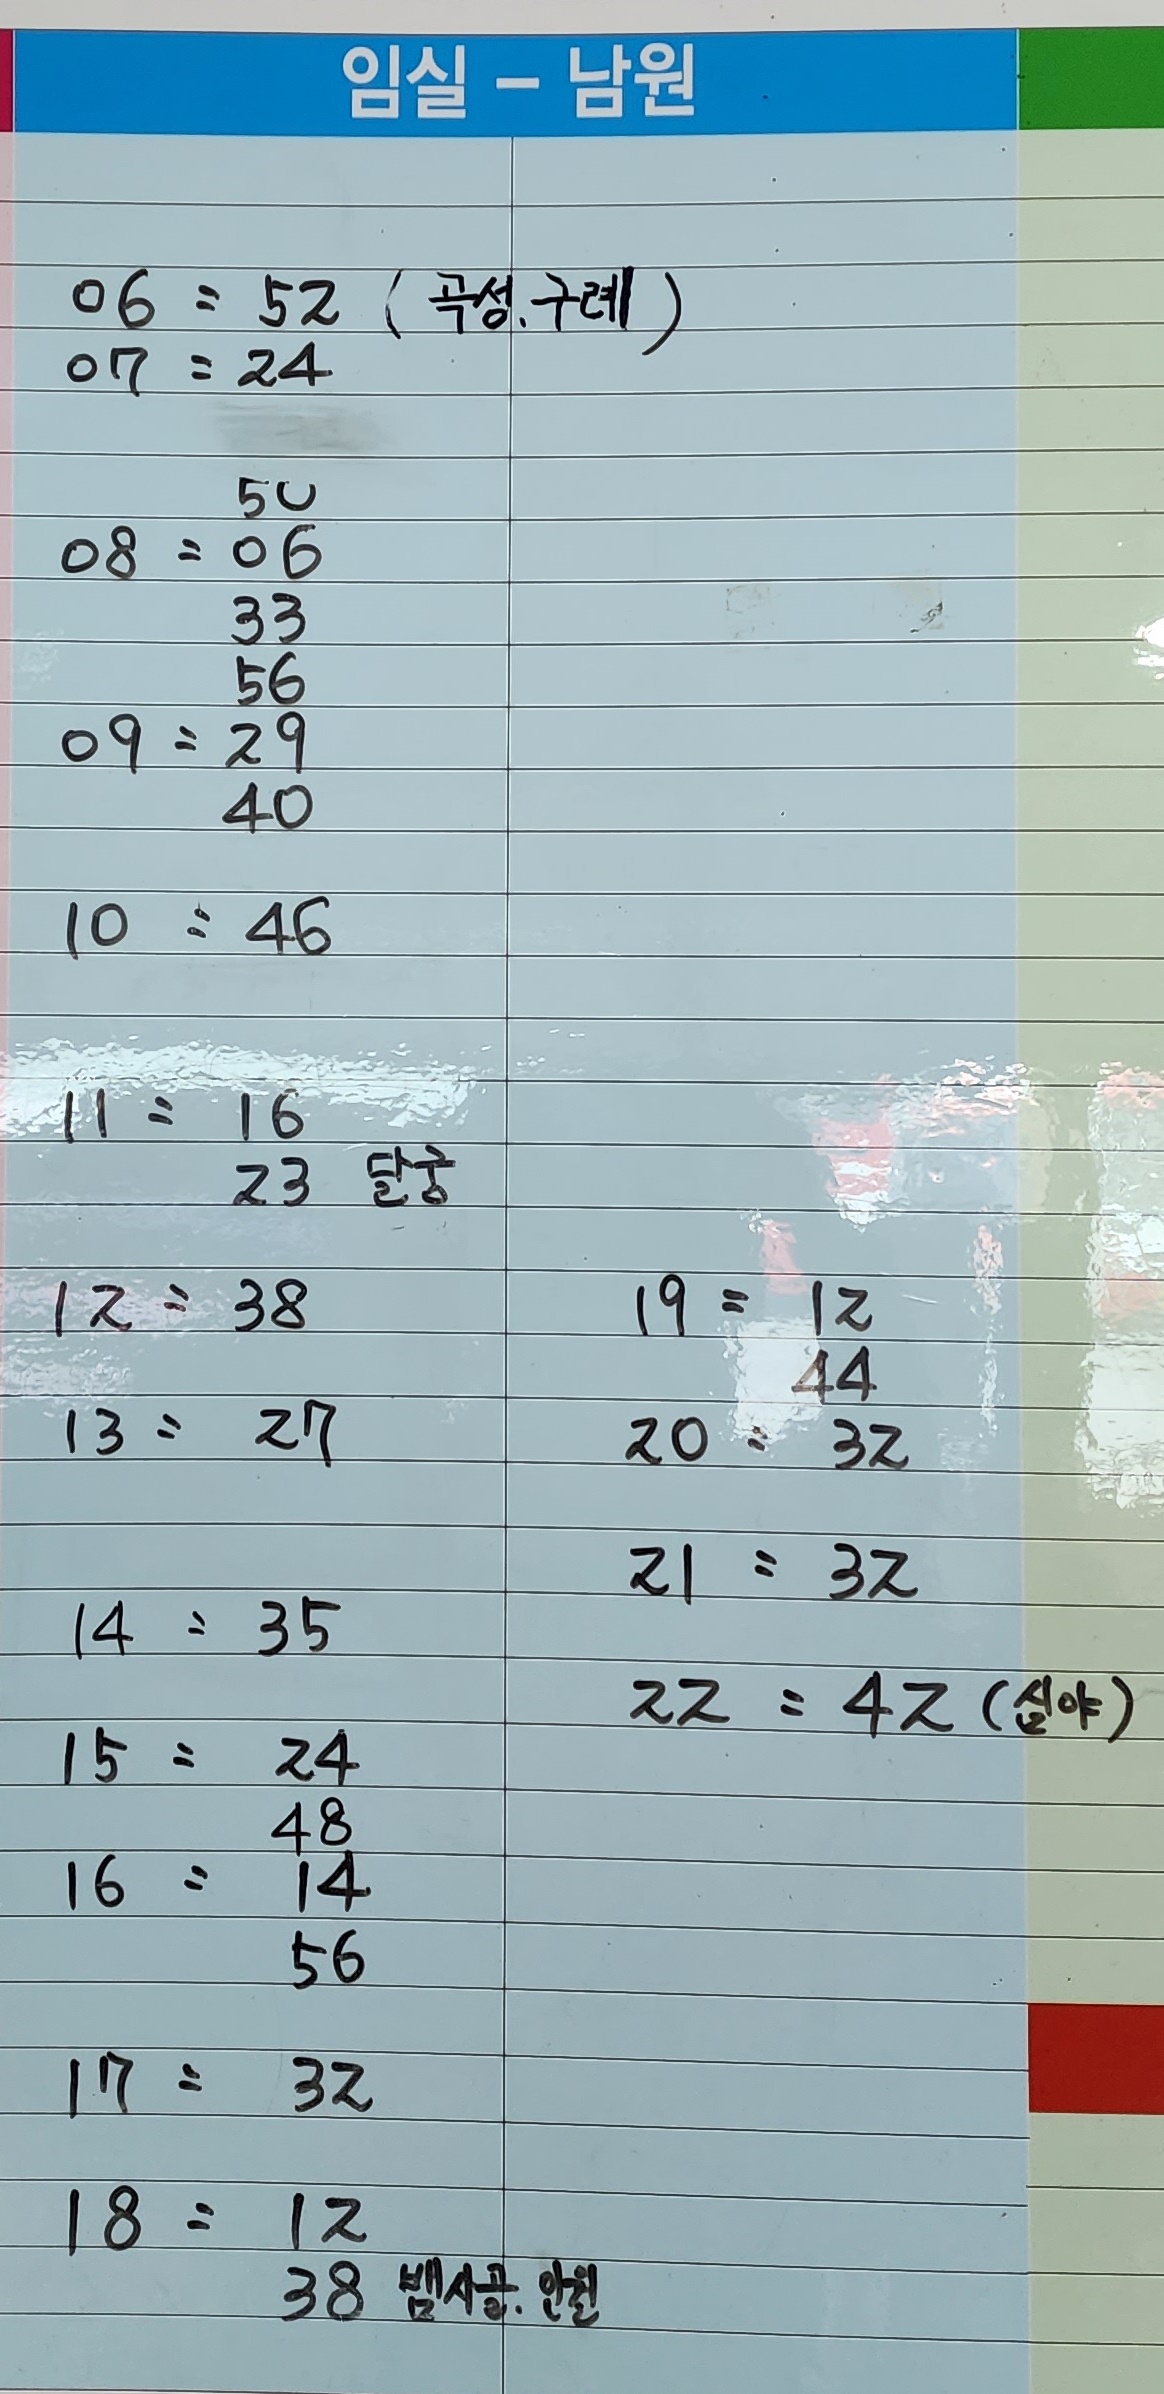 임실 - 남원
06 = 52 ( 곡성.구례 )
07 = 24
50
08 = 06
33
56
09 = 29
40
10 = 46
11 = 16
23 달궁
12 = 38
13 = 27
14 = 35
15 = 24
48
16 = 14
56
17 = 32
18 = 12
38 뱀사골. 인월
19 = 12
44
20 = 32
21 = 32
22 = 42 (심야)